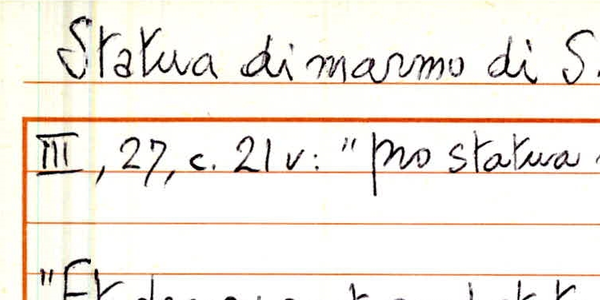 Statua di marmo di S.
III, 27, c. 21 v: "pro statua
"Et